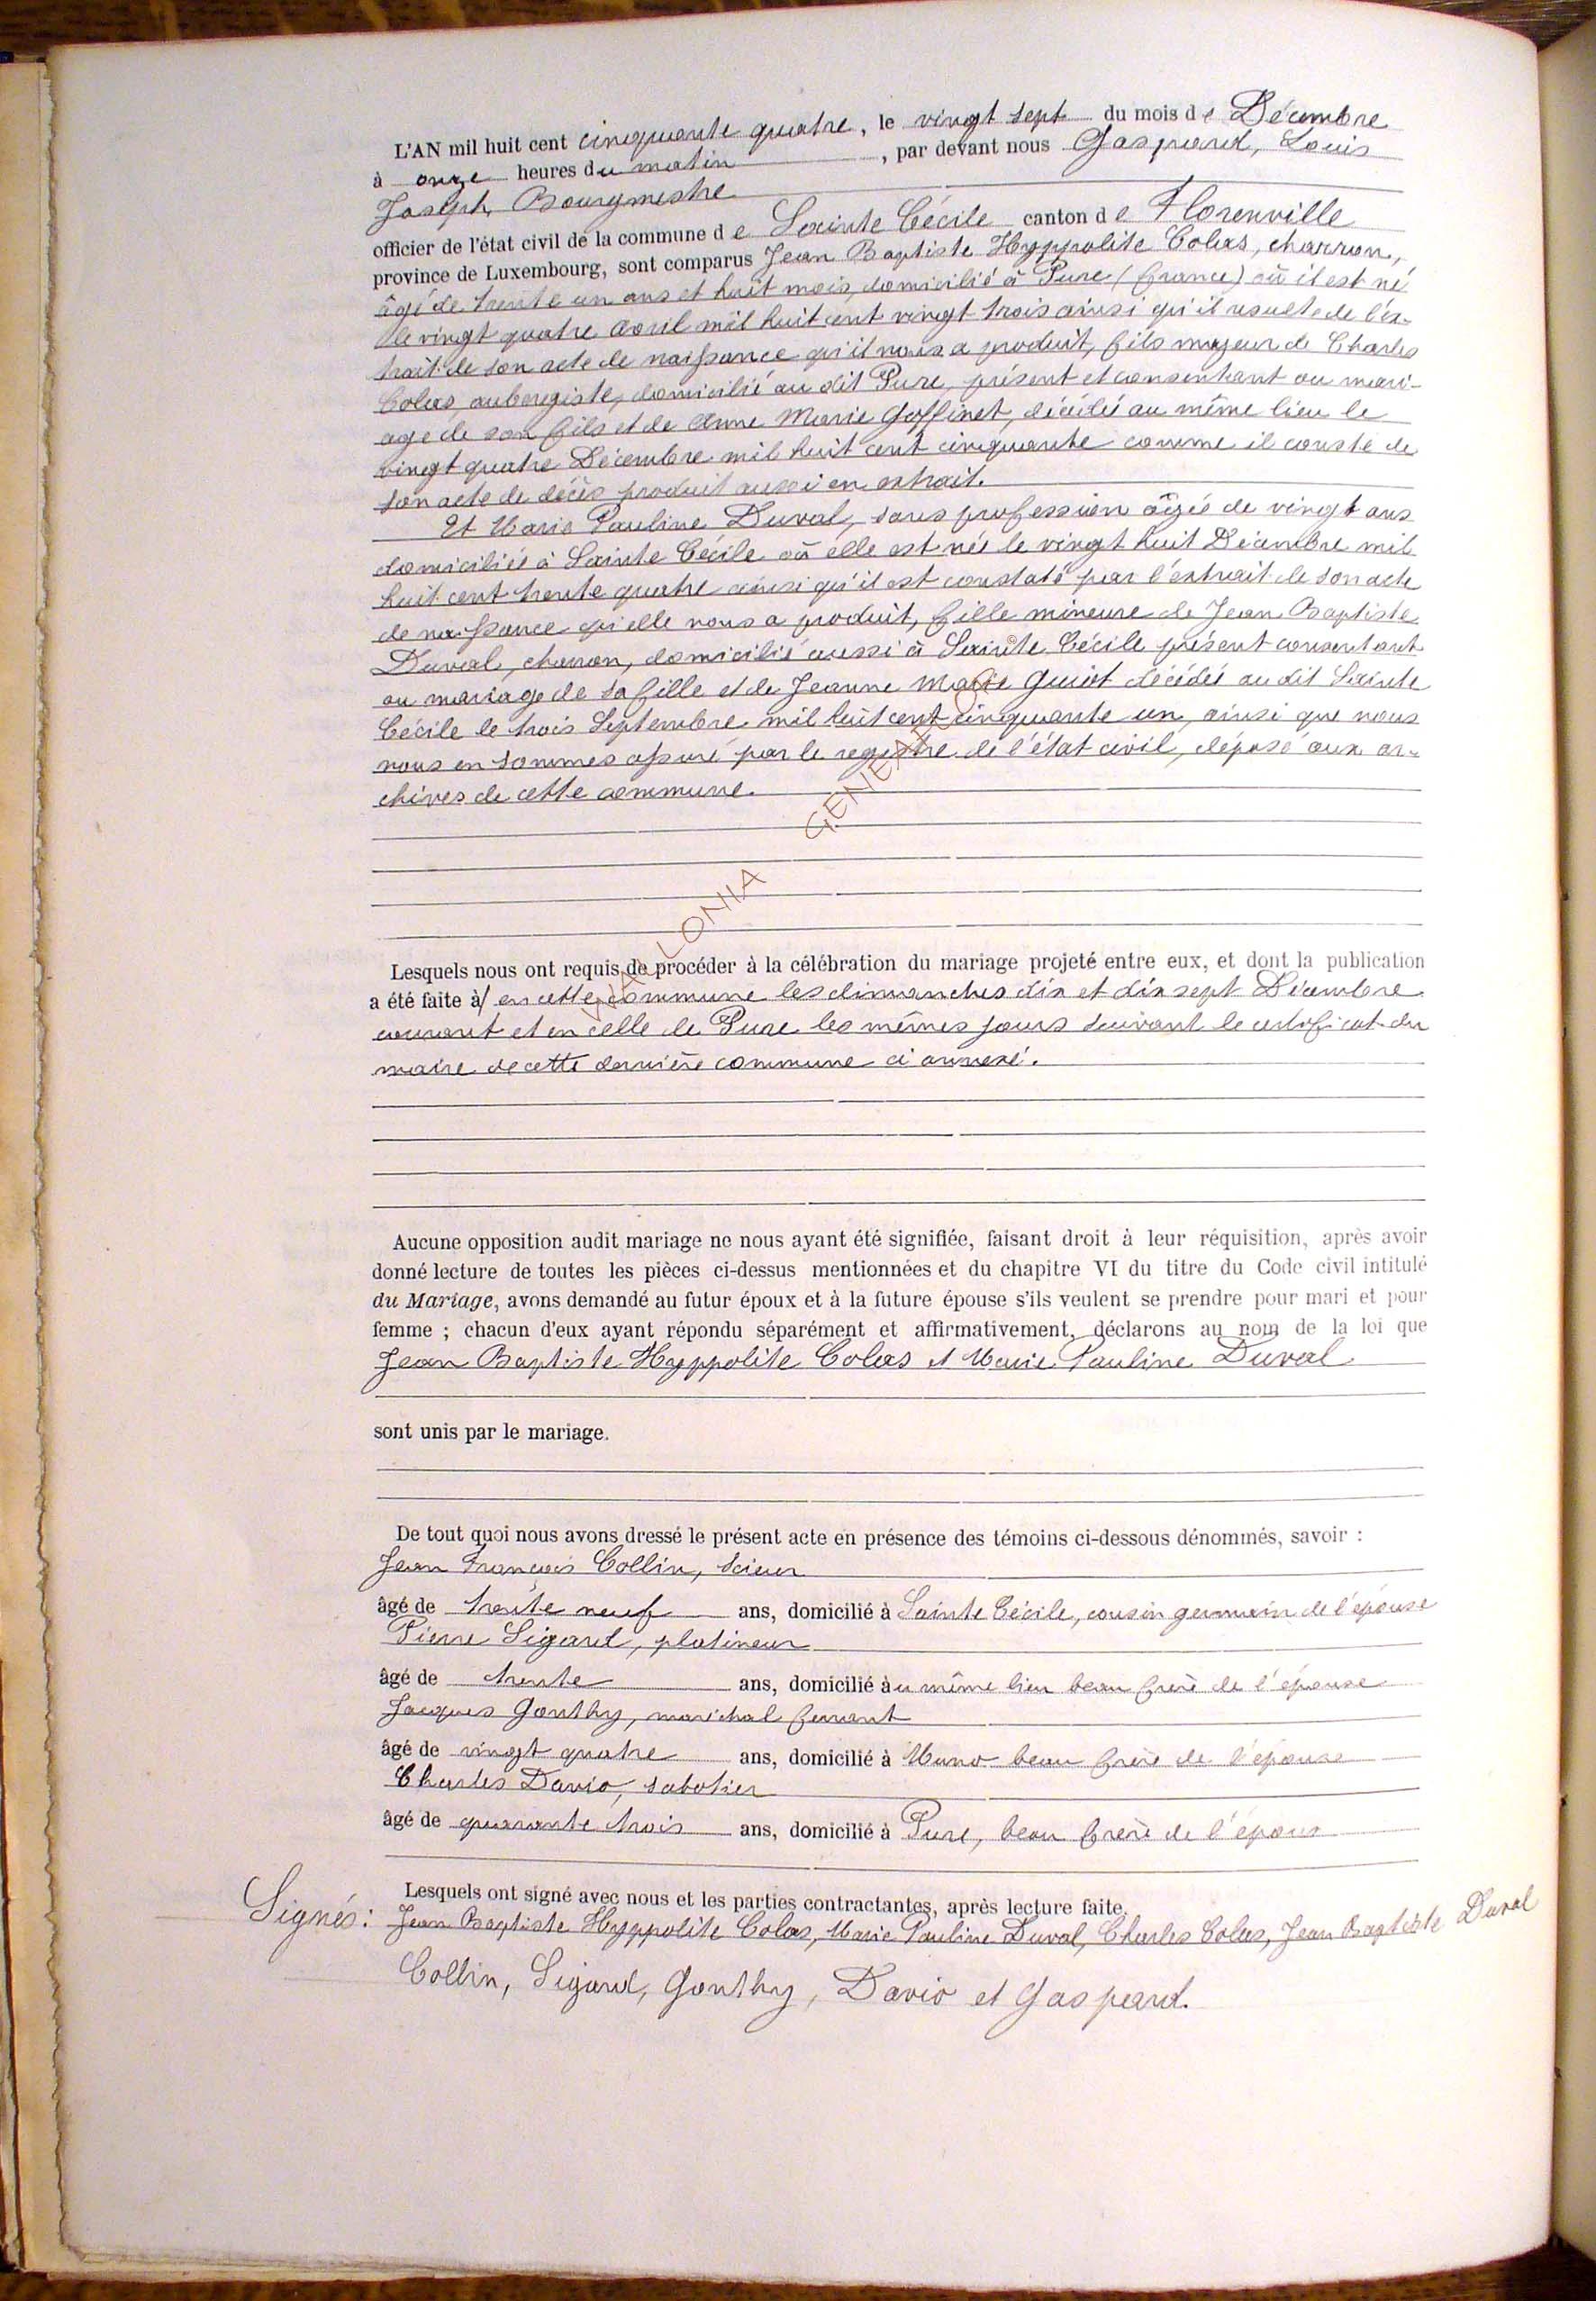 L'AN mil huit cent cinquante quatre, le vingt sept du mois de Décembre
à onze heures du matin, par devant nous Gaspard, Louis
Joseph, Bourgmestre
officier de l'état civil de la commune de Sainte Cécile canton de Florenville
province de Luxembourg, sont comparus Jean Baptiste Hyppolite Colas, charron,
âgé de trente un ans et huit mois, domicilié à Pure (france) où il est né
le vingt quatre Avril mil huit cent vingt trois ainsi qu'il resulte de l'ex-
trait de son acte de naissance qu'il nous a produit, fils majeur de Charles
Colas, aubergiste, domicilié au dit Pure, présent et consentant au mari-
age de son fils et de Anne Marie Goffinet, décédée au même lieu le
vingt quatre Décembre mil huit cent cinquante comme il conste de
son acte de décès produit aussi en extrait.
Et Marie Pauline Duval, sans profession âgée de vingt ans
domiciliée à Sainte Cécile où elle est née le vingt huit Décembre mil
huit cent trente quatre ainsi qu'il est constaté par l'extrait de son acte
de naissance qu'elle nous a produit, fille mineure de Jean Baptiste
Duval, charron, domicilié aussi à Sainte Cécile présent consentant
au mariage de sa fille et de Jeanne Marie Guiot décédée au dit Sainte
Cécile le trois Septembre mil huit cent cinquante un, ainsi que nous
nous en sommes assuré par le registre de l'état civil, déposé aux ar-
chives de cette commune.
© WALLONIA GENEALOGY
Lesquels nous ont requis de procéder à la célébration du mariage projeté entre eux, et dont la publication
a été faite à/ en cette commune les dimanches dix et dix sept Décembre
courant et en celle de Pure les mêmes jours suivant le certificat du
maire de cette dernière commune ci annexé.
Aucune opposition audit mariage ne nous ayant été signifiée, faisant droit à leur réquisition, après avoir
donné lecture de toutes les pièces ci-dessus mentionnées et du chapitre VI du titre du Code civil intitulé
du Mariage, avons demandé au futur époux et à la future épouse s'ils veulent se prendre pour mari et pour
femme ; chacun d'eux ayant répondu séparément et affirmativement, déclarons au nom de la loi que
Jean Baptiste Hyppolite Colas et Marie Pauline Duval
sont unis par le mariage.
De tout quoi nous avons dressé le présent acte en présence des témoins ci-dessous dénommés, savoir :
Jean François Collin, scieur
âgé de trente neuf ans, domicilié à Sainte Cécile, cousin germain de l'épouse
Pierre Sigard, platineur
âgé de trente ans, domicilié au même lieu beau frère de l'épouse
Jacques Gonthy, maréchal ferrant
âgé de vingt quatre ans, domicilié à Muno beau frère de l'épouse
Charles Davio, sabotier
âgé de quarante trois ans, domicilié à Pure, beau frère de l'époux
Lesquels ont signé avec nous et les parties contractantes, après lecture faite.
Signés: Jean Baptiste Hyppolite Colas, Marie Pauline Duval, Charles Colas, Jean Baptiste Duval
Collin, Sigard, Gonthy, Davio et Gaspard.